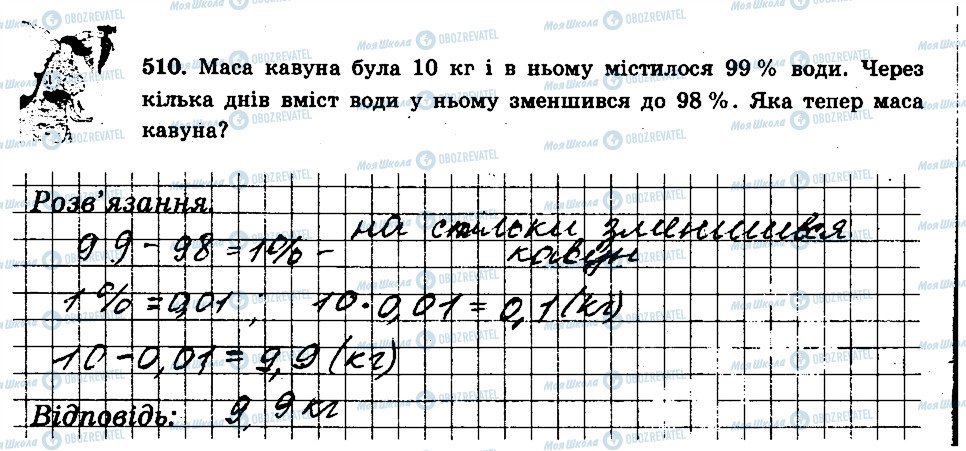 510. Маса кавуна була 10 кг і в ньому містилося 99 % води. Через
кілька днів вміст води у ньому зменшився до 98 %. Яка тепер маса
кавуна?
Розв'язання.
99 - 98 = 1% - на стільки зменшився
кавун
1% = 0,01, 10 · 0,01 = 0,1 (кг)
10 - 0,01 = 9,9 (кг)
Відповідь: 9,9 кг